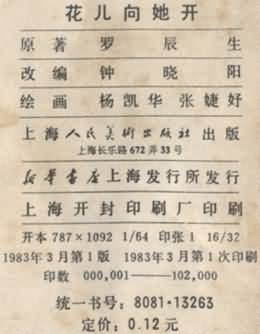 花儿向她开
原著 罗辰生
改编 钟晓阳
绘画 杨凯华 张婕妤
上海人民美术出版社出版
上海长乐路672弄33号
新华书店上海发行所发行
上海开封印刷厂印刷
开本787×1092 1/64 印张1 16/32
1983年3月第1版 1983年3月第1次印刷
印数 000,001——102,000
统一书号: 8081·13263
定价: 0.12元